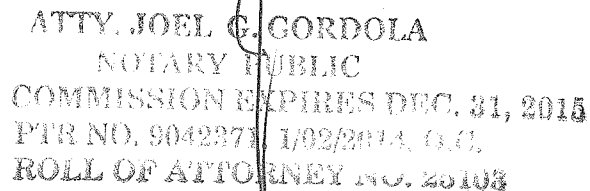 ATTY. JOEL G. GORDOLA
NOTARY PUBLIC
COMMISSION EXPIRES DEC. 31, 2015
PTR NO. 9042371, 1/02/2014, Q.C.
ROLL OF ATTORNEY NO. 25103